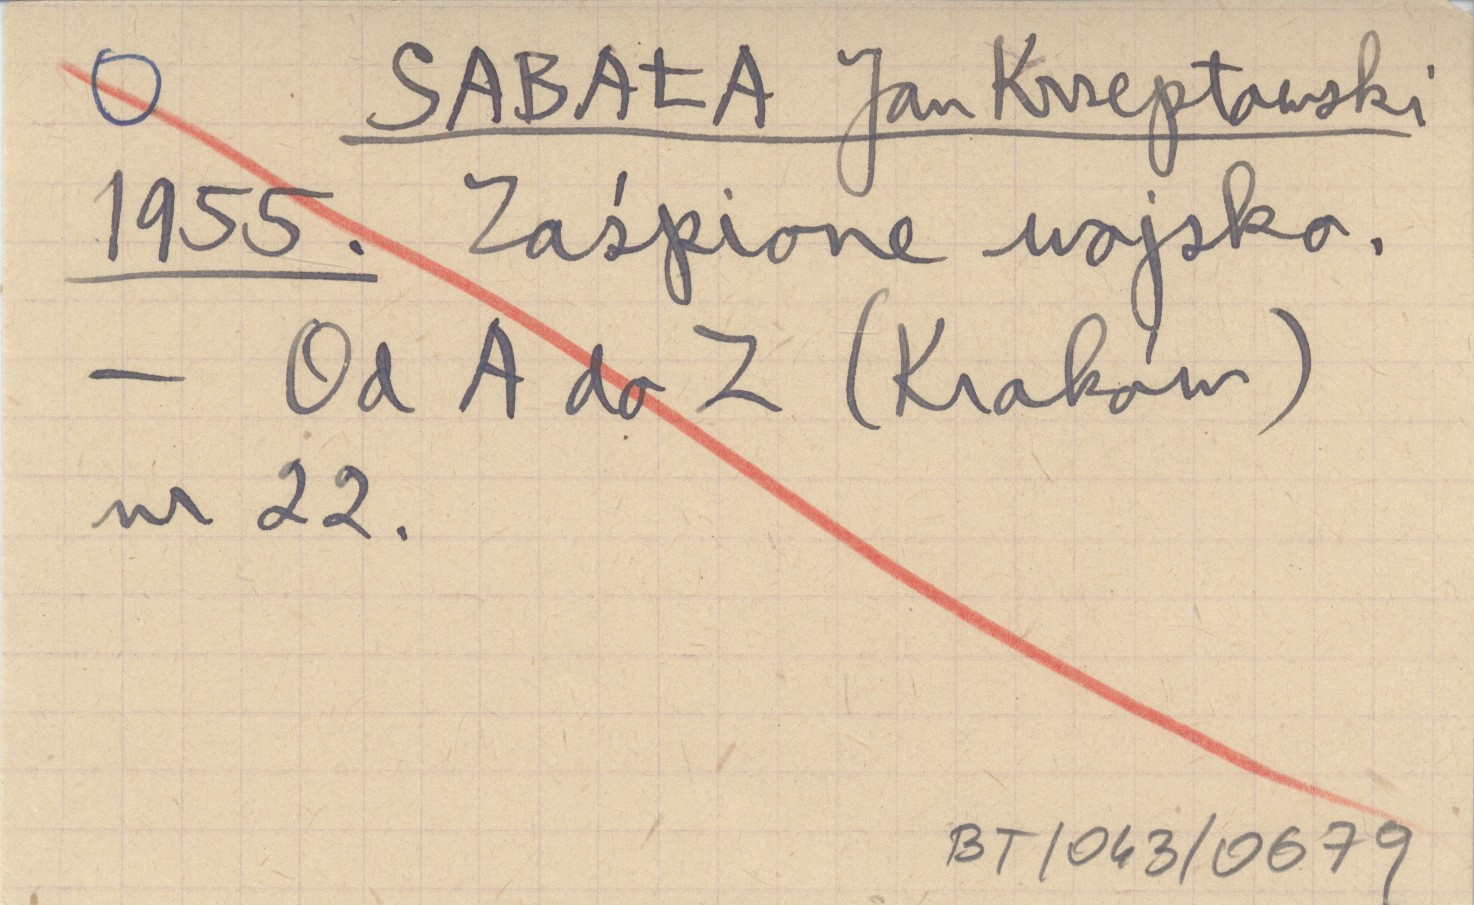 O SABAŁA Jan Krzeptowski
1955. Zaśpione wojsko.
— Od A do Z (Kraków)
nr 22.
BT/043/0679